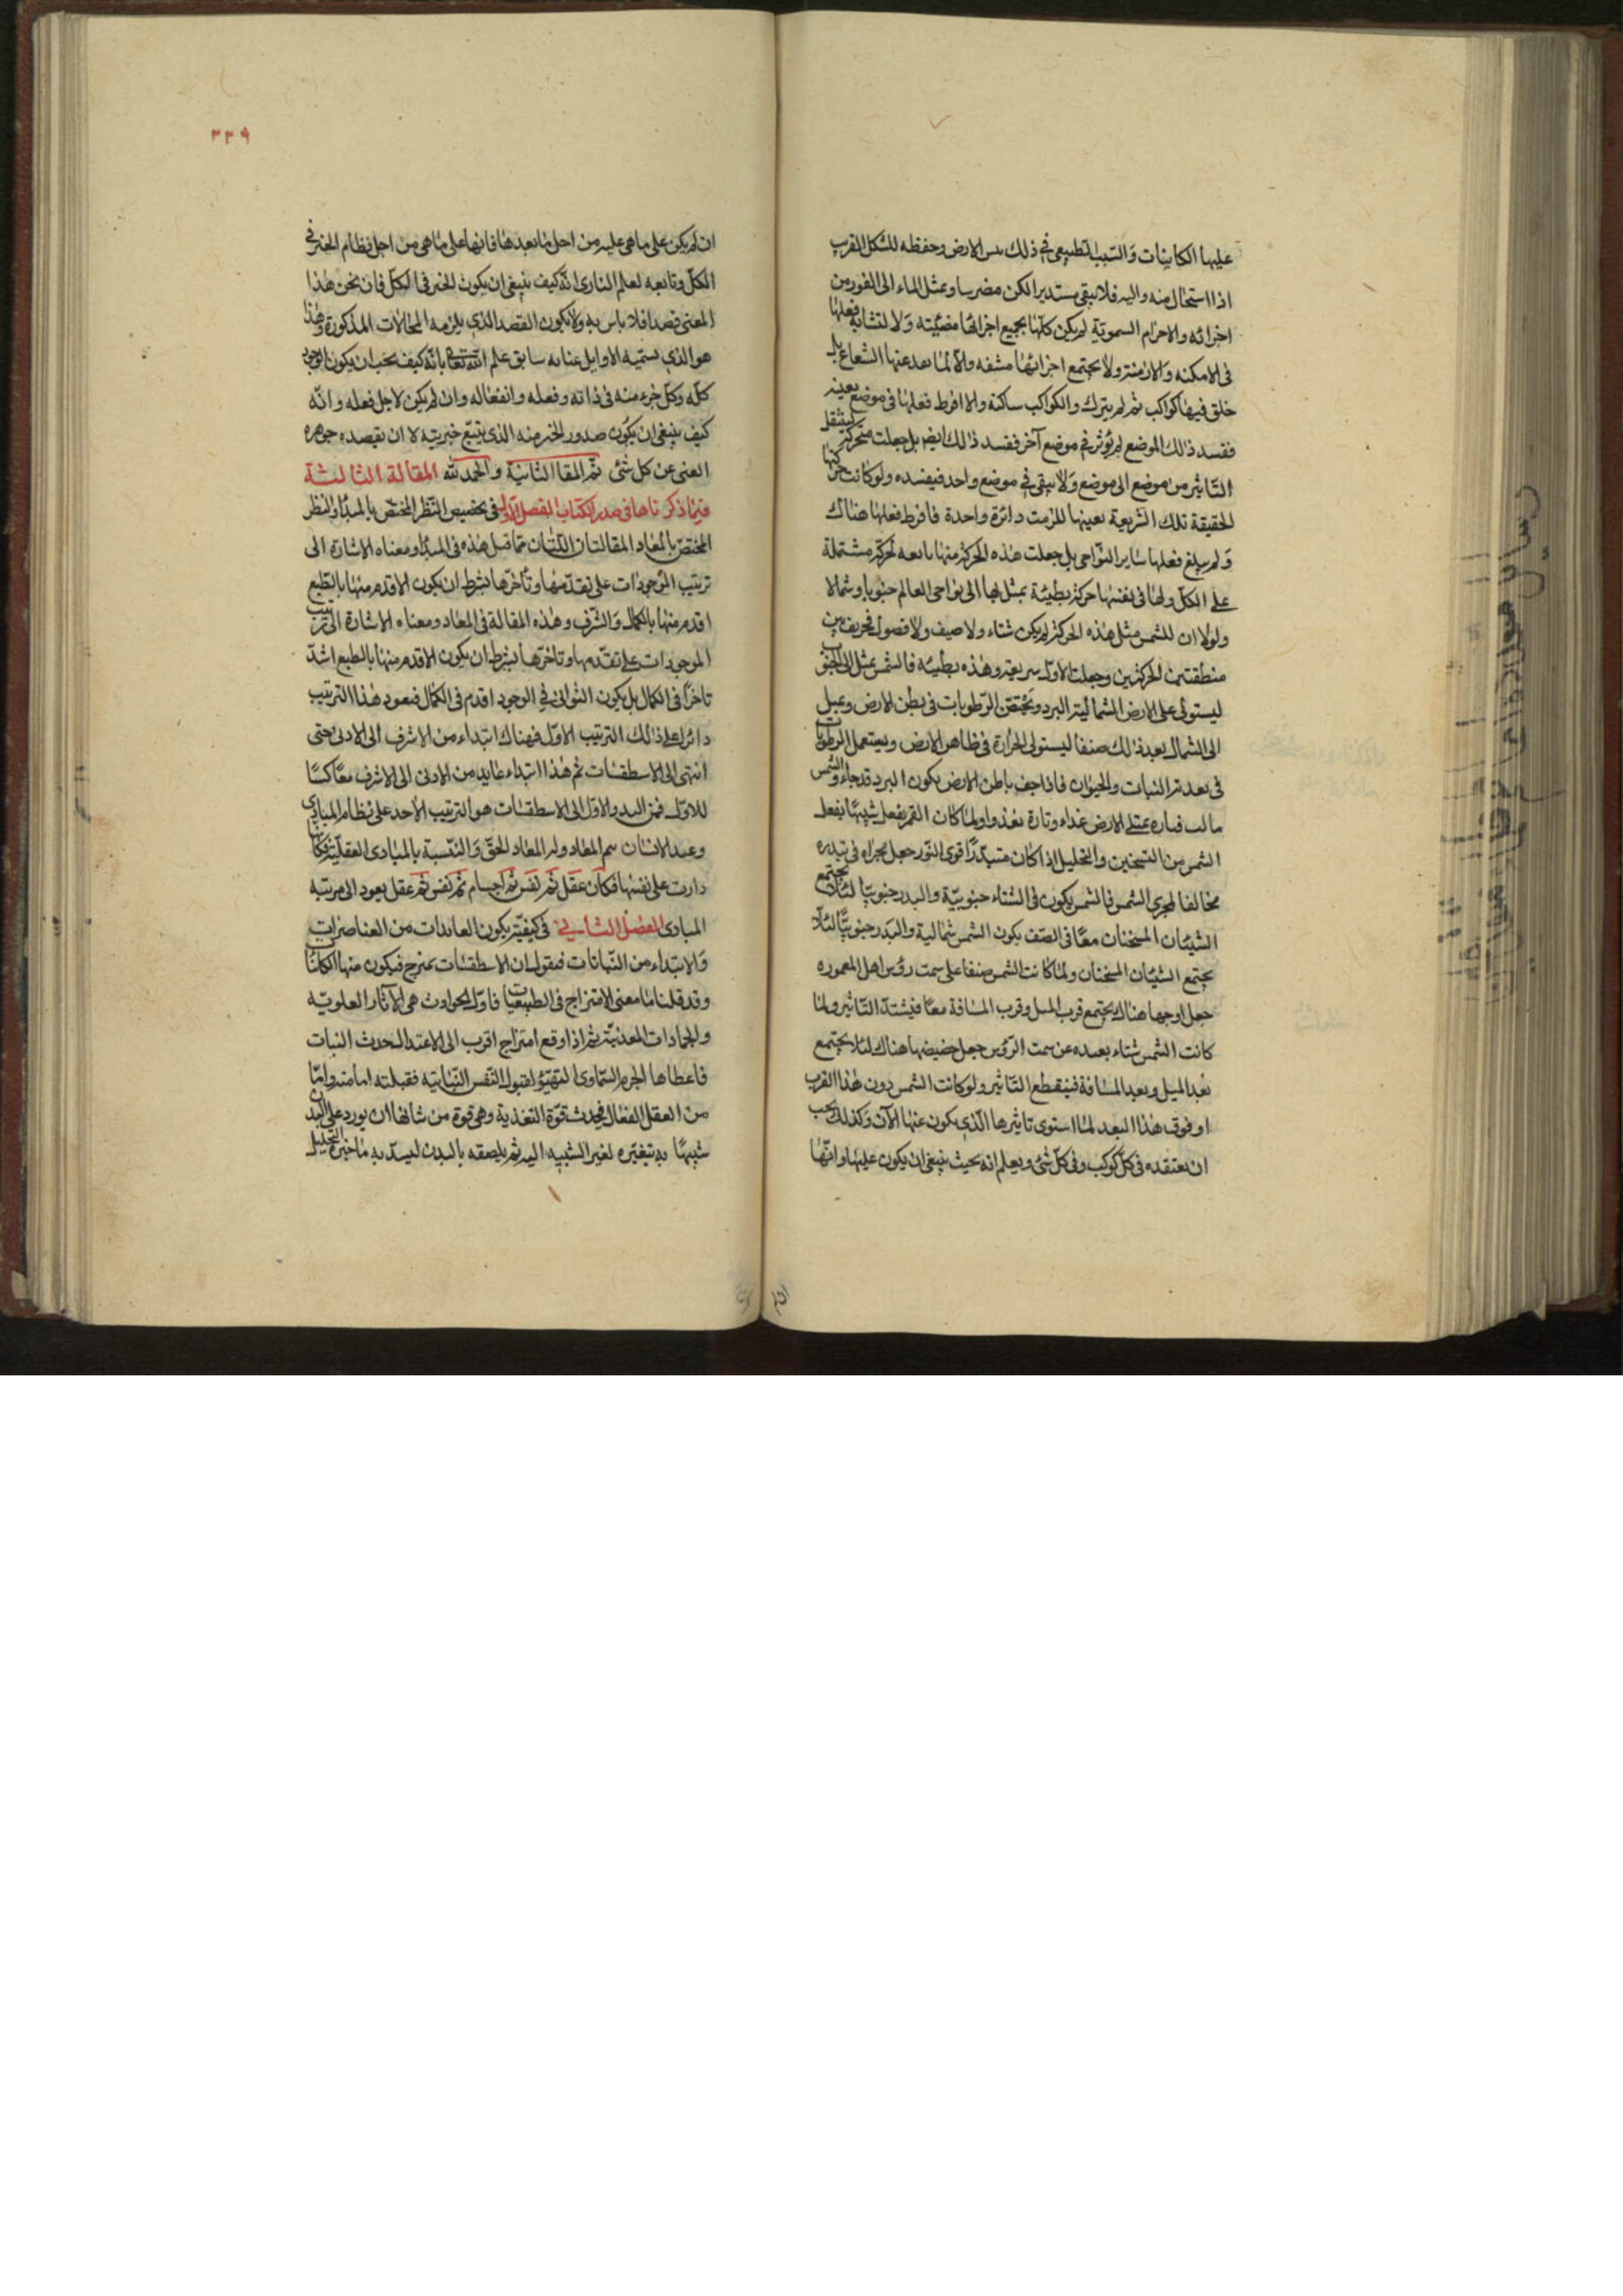 عليها الكاينات والسبب الطبيعي في ذلك يبس الارض وحفظه للشكل القريب
اذا استحال منه واليه فلا يبقى مستديرا لكن مضرسا ويميل الماء الى الغور من
اجزائه والاجرام السموية لم يكن كلها بجميع اجزائها مضيئته ولا لتشابه فعلها
فى الامكنه والازمنة ولا بجميع اجزائها مشفه والا لما نفد عنها الشعاع بل
خلق فيها كواكب ثم لم يترك والكواكب ساكنة والا افرط فعلها فى موضع بعينه
ففسد ذلك الموضع لم يؤثر في موضع آخر ففسد ذلك ايض بل جعلت متحركة لينتقل
التاثير من موضع الى موضع ولا يبقى في موضع واحد فيفسده ولو كانت حركتها
الحقيقة تلك السريعة بعينها للزمت دائرة واحدة فافرط فعلها هناك
ولم يبلغ فعلها ساير النواحى بل جعلت هذه الحركة منها تابعه لحركة مشتملة
على الكل ولها فى نفسها حركة بطيئة يميل بها الى نواحى العالم جنوبا وشمالا
ولولا ان للشمس مثل هذه الحركة لم يكن شتاء ولا صيف ولا فصول فخولف بين
منطقتى الحركتين وجعلت الاولى سريعة وهذه بطيئه فالشمس يميل الى الجنوب
ليستولى على الارض الشمالية البرد ويحتقن الرطوبات فى بطن الارض ويميل
الى الشمال بعد ذلك صيفا ليستولى الحرارة فى ظاهر الارض ويستعمل الرطوبات
فى تغذية النبات والحيوان فاذا جف باطن الارض يكون البرد قد جاء والشمس
مالت فتارة يمتلى الارض غذاء وتارة يغذو ولما كان القمر يفعل شبيها بفعل
الشمس من التسخين والتحليل اذا كان متبدرا قوى النور جعل مجراه فى تبدره
مخالفا لمجرى الشمس فالشمس يكون فى الشتاء جنوبية والبدر جنوبيا لئلا يجتمع
الشيئان المسخنان معا فى الصف يكون الشمس شمالية والبدر جنوبيا لئلا
يجتمع الشيئان المسخنان ولما كانت الشمس صيفا على سمت رؤس اهل المعموره
جعل اوجها هناك يجتمع قرب الميل وقرب المسافة معا فيشتد التاثير ولما
كانت الشمس شتاء بعيده عن سمت الرؤس جعل حضيضها هناك لئلا يجتمع
بعد الميل وبعد المسافة فينقطع التاثير ولو كانت الشمس دون هذا القرب
او فوق هذا البعد لما استوى تاثيرها الذى يكون عنها الآن وكذلك يجب
ان يعتقده فى كل كوكب وفى كل شئ ويعلم انه بحيث ينبغى ان يكون عليها وانها
٣٣٩
ان لم يكن على ما هى عليه من اجل ما بعدها فانها على ما هى من اجل نظام الخير في
الكل وتابعه لعلم البارى انه كيف ينبغى ان يكون الخير فى الكل فان نحن هذا
المعنى قصدا فلا باس به ولا يكون القصد الذى يلزمه المحالات المذكورة وهذا
هو الذي يستميه الاوايل عنايه سابق علم الله تعالى بانه كيف يجب ان يكون الوجود
كله وكل جزء منه فى ذاته وفعله وانفعاله وان لم يكن لاجل فعله وانه
كيف ينبغى ان يكون صدور الخير منه الذى يتبع خيريته لا ان يقصده جوهره
الغنى عن كل شئ تم المقالة الثانية والحمد لله المقالة الثالثة
فيما ذكرناها فى صدر الكتاب الفصل الاول فى تخصيص النظر المختص بالمبدأ والنظر
المختص بالمعاد المقالتان اللتان مما قبل هذه فى المبدأ ومعناه الاشارة الى
ترتيب الموجودات على تقدمها وتاخرها بشرط ان يكون الاقدم منها بالطبع
اقدم منها بالكمال والشرف وهذه المقالة فى المعاد ومعناه الاشارة الى ترتيب
الموجودات على تقدمها وتاخرها بشرط ان يكون الاقدم منها بالطبع اشد
تاخرا فى الكمال بل يكون الثوانى في الوجود اقدم فى الكمال فيعود هذا الترتيب
دائرا على ذلك الترتيب الاول فهناك ابتداء من الاشرف الى الادنى حتى
انتهى الى الاسطقسات ثم هذا ابتداء عايد من الادنى الى الاشرف معاكسا
للاول فمن البدو الاول الى الاسطقسات هو الترتيب الآخذ على نظام المبادى
وعند الانسان يتم المعاد وله المعاد الحق والتشبه بالمبادى العقلية فكانها
دارت على نفسها فكان عقل ثم نفس ثم اجسام ثم نفس ثم عقل يعود الى مرتبه
المبادى الفصل الثاني فى كيفية يكون العائدات من العناصر
والابتداء من النباتات فيقول ان الاسطقسات يمتزج فيكون منها الكائنات
وقد قلنا ما معنى الامتزاج فى الطبيعيات فاول الحوادث هى الآثار العلويه
والجمادات المعدنية ثم اذا وقع امتزاج اقرب الى الاعتدال حدث النبات
فاعطاها الجرم السماوى التهيؤ لقبول النفس النباتيه فقبلته اما منه واما
من العقل الفعال فيحدث قوة التغذية وهى قوة من شانها ان يورد على البدن
شبيها به بتغيره لغير الشبيه اليه ثم يلصقه بالبدن ليسد به ما خيره التحليل